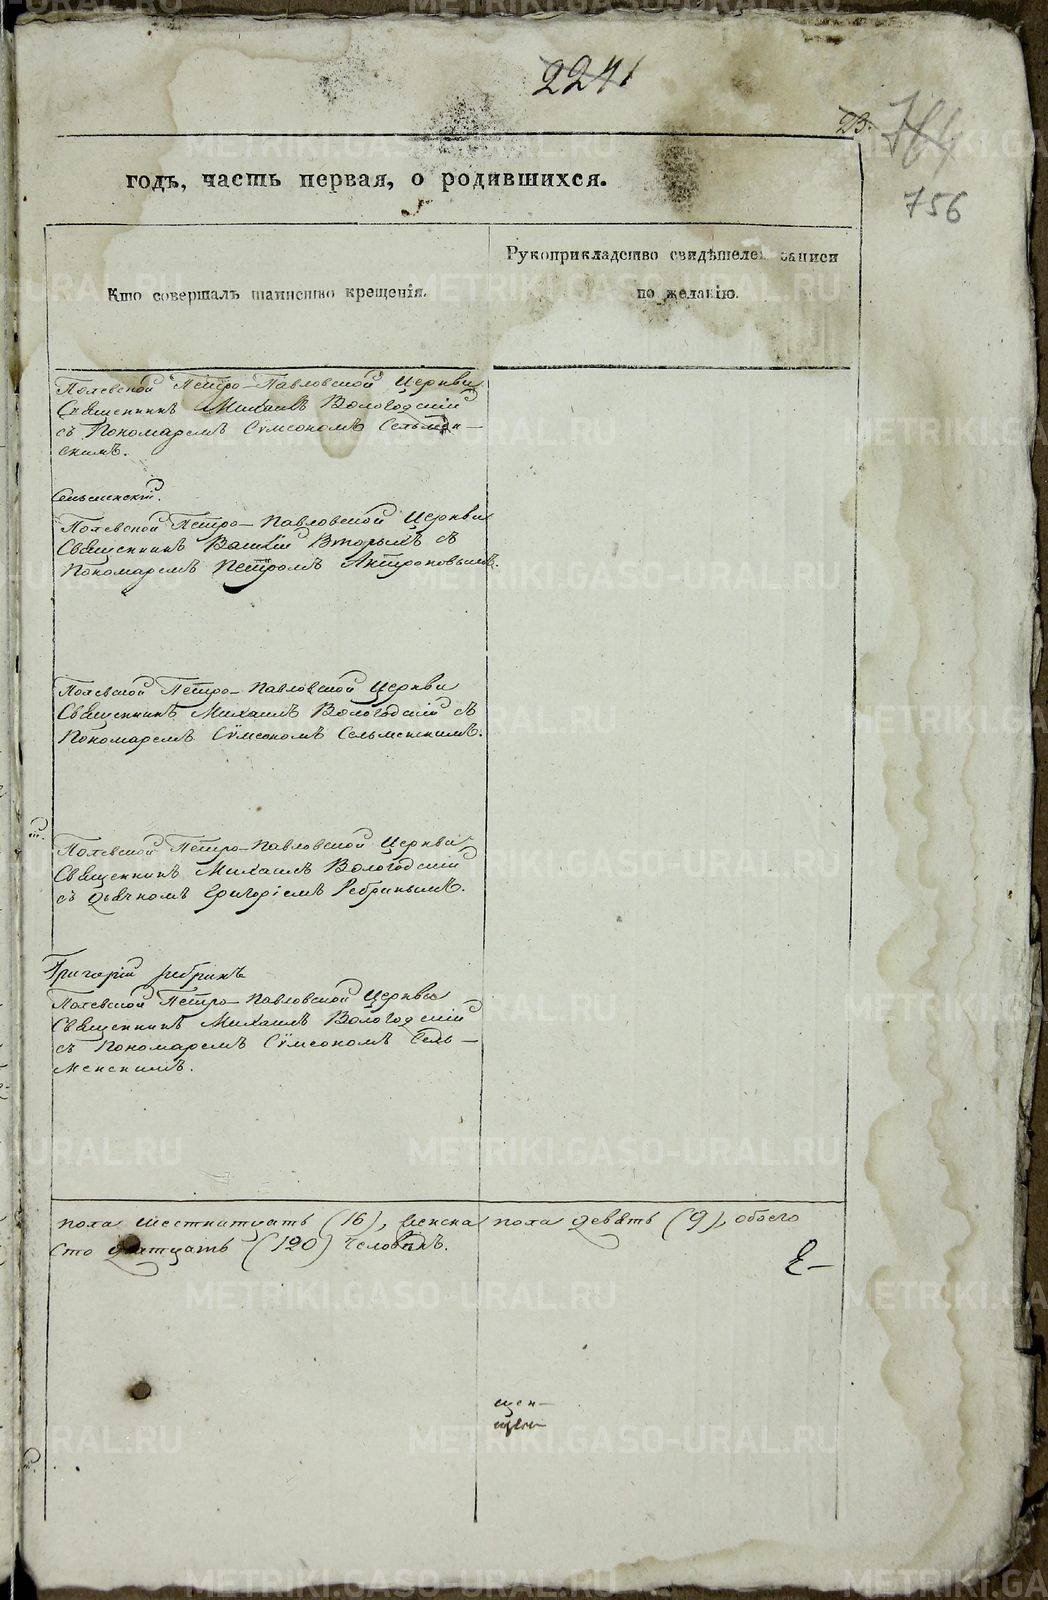 2241
23.
764
756
годъ, часть первая, о родившихся.
Кто совершалъ таинство крещенія.
Рукоприкладство свидѣтелей записи
по желанію.
Полевской Петро-Павловской Церкви
Священникъ Михаилъ Вологодскій
съ Пономаремъ Сѵмеономъ Сельмен-
скимъ.
Сельменскій.
Полевской Петро-Павловской Церкви
Священникъ Вторымъ съ
Пономаремъ Петромъ Антроповымъ.
Полевской Петро-Павловской Церкви
Священникъ Михаилъ Вологодскій съ
Пономаремъ Сѵмеономъ Сельменскимъ.
Полевской Петро-Павловской Церкви
Священникъ Михаилъ Вологодскій
съ Дьячкомъ Григоріемъ Ребринымъ.
Григорій Ребринъ
Полевской Петро-Павловской Церкви
Священникъ Михаилъ Вологодскій
съ Пономаремъ Сѵмеономъ Сель-
менскимъ.
пола шестнатцать (16), женска пола девять (9), обоего
сто дватцать (120) человѣкъ.
щен-
METRIKI.GASO-URAL.RU